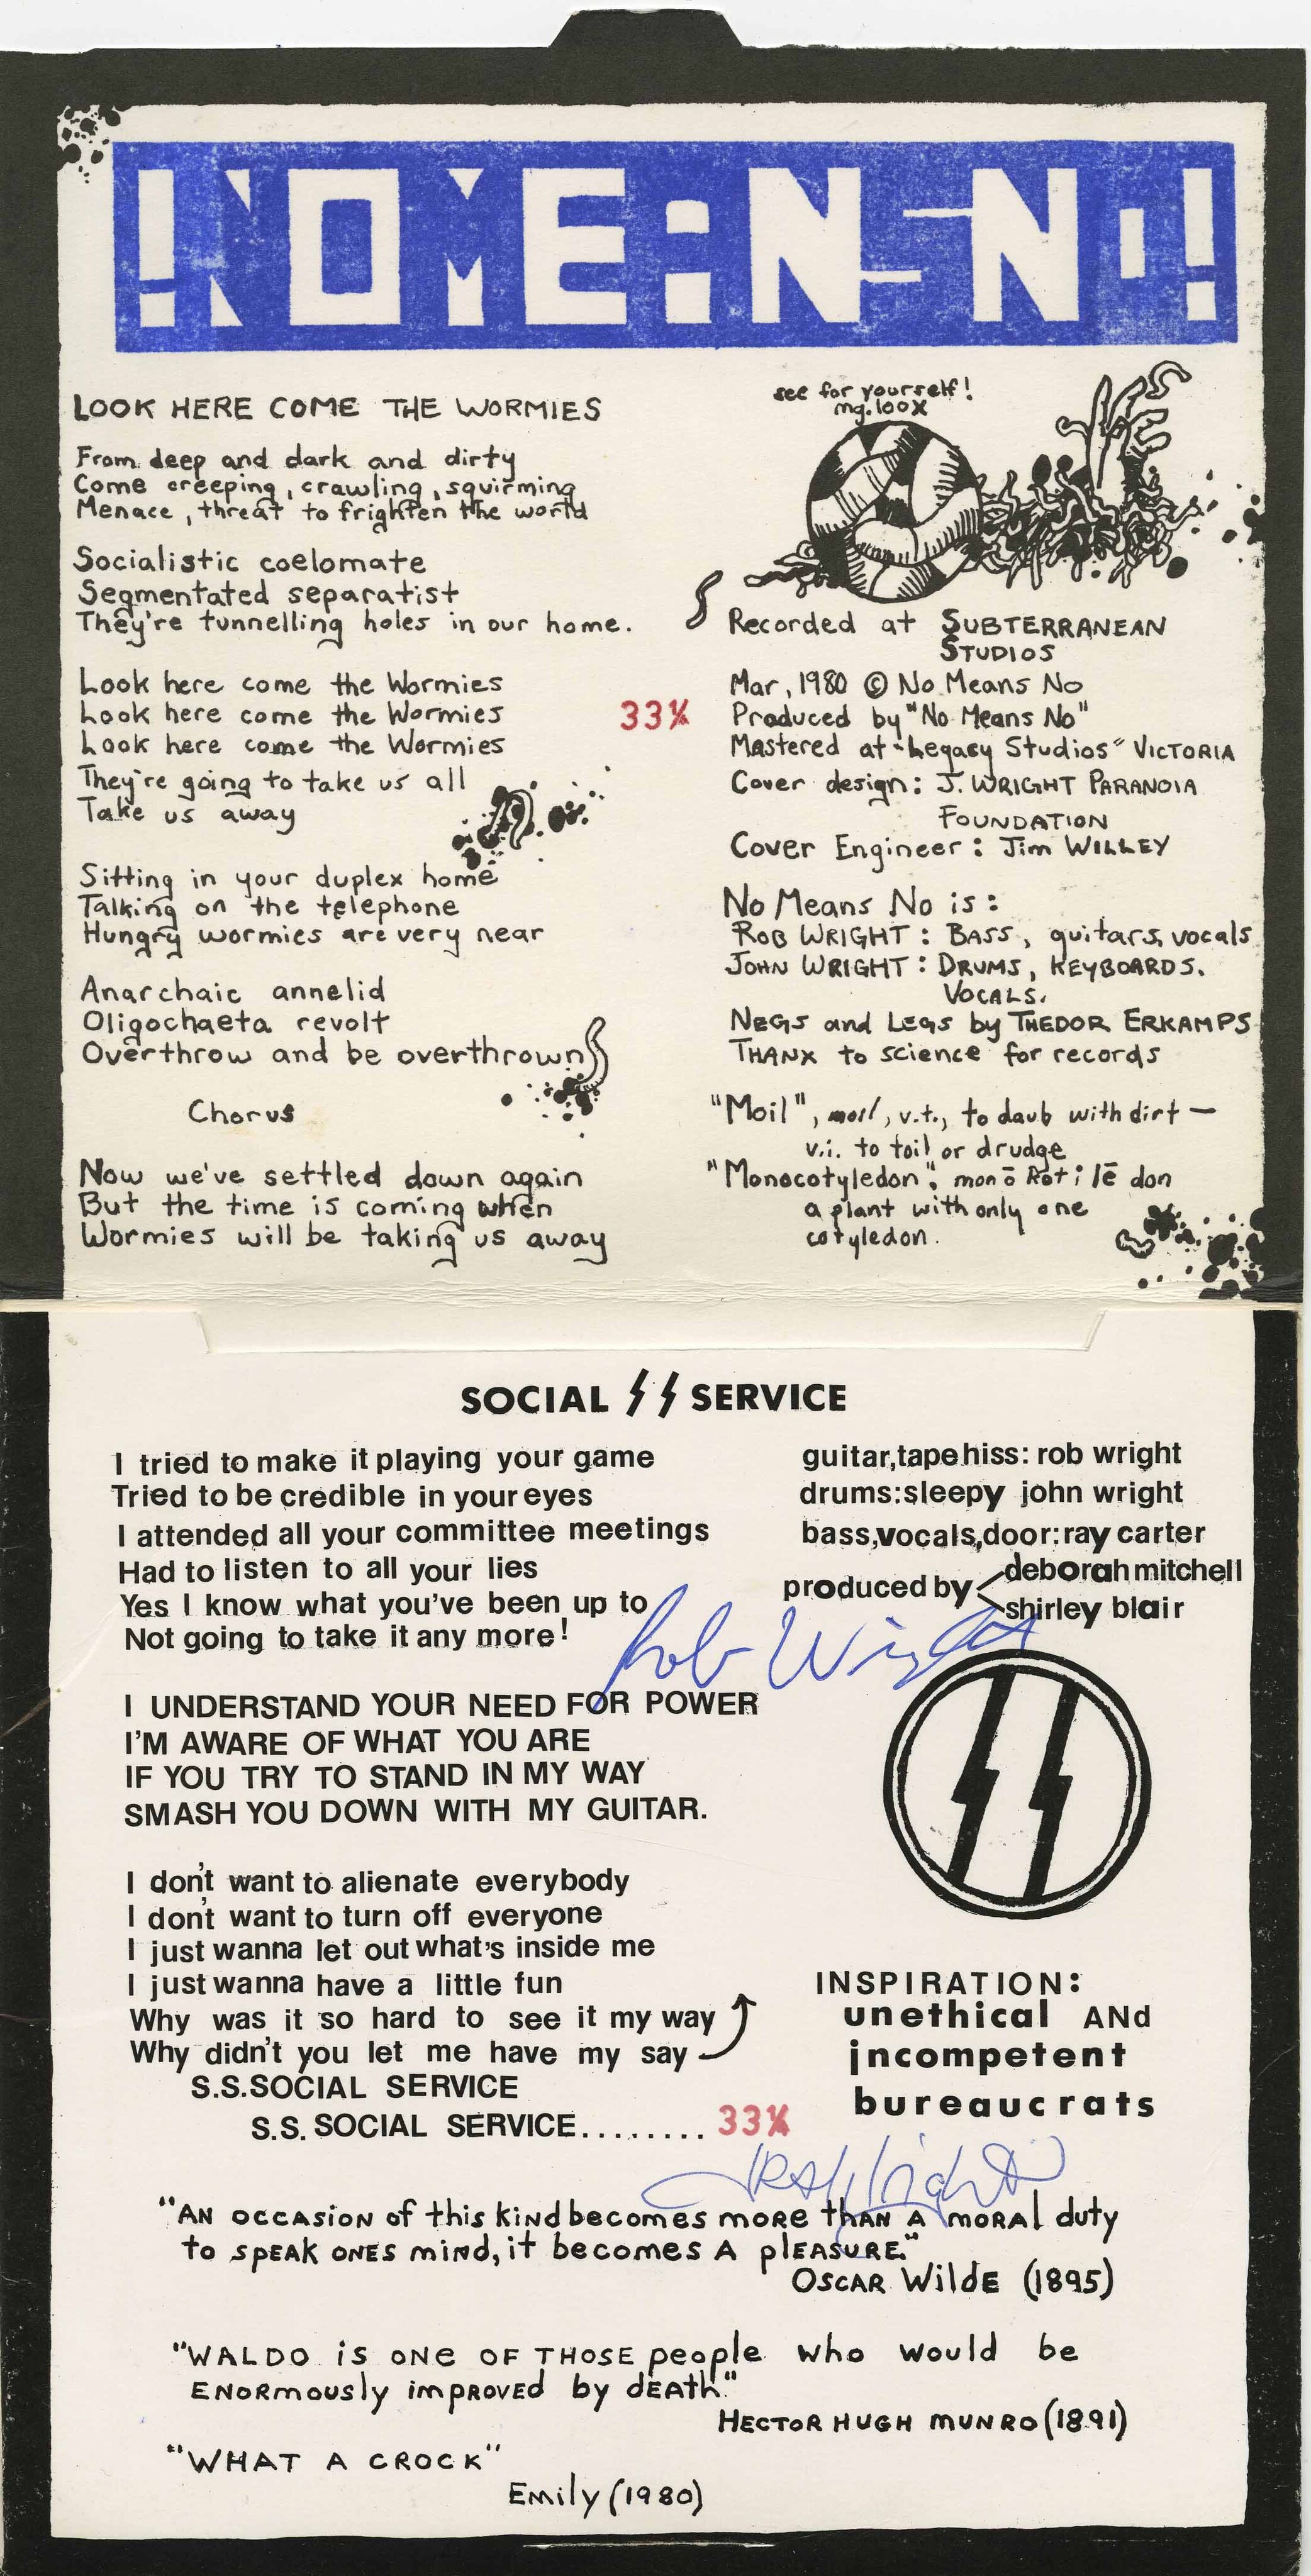 NOMEANSNO!
LOOK HERE COME THE WORMIES
From deep and dark and dirty
Come creeping, crawling, squirming
Menace, threat to frighten the world
Socialistic coelomate
Segmentated separatist
They're tunnelling holes in our home.
Look here come the Wormies
Look here come the Wormies
Look here come the Wormies
They're going to take us all
Take us away
Sitting in your duplex home
Talking on the telephone
Hungry wormies are very near
Anarchaic annelid
Oligochaeta revolt
Overthrow and be overthrown
Chorus
Now we've settled down again
But the time is coming when
Wormies will be taking us away
33⅓
see for yourself!
mg. 100X
Recorded at SUBTERRANEAN
STUDIOS
Mar, 1980 © No Means No
Produced by "No Means No"
Mastered at "Legacy Studios" VICTORIA
Cover design: J. WRIGHT PARANOIA
FOUNDATION
Cover Engineer: Jim WILLEY
No Means No is:
ROB WRIGHT: BASS, guitars, vocals
JOHN WRIGHT: DRUMS, KEYBOARDS.
VOCALS.
NEGS and LEGS by THEDOR ERKAMPS
THANX to science for records
"Moil", moil, v.t., to daub with dirt —
v.i. to toil or drudge
"Monocotyledon", mon ō kot i lē don
a plant with only one
cotyledon.
SOCIAL SS SERVICE
I tried to make it playing your game
Tried to be credible in your eyes
I attended all your committee meetings
Had to listen to all your lies
Yes I know what you've been up to
Not going to take it any more!
I UNDERSTAND YOUR NEED FOR POWER
I'M AWARE OF WHAT YOU ARE
IF YOU TRY TO STAND IN MY WAY
SMASH YOU DOWN WITH MY GUITAR.
I don't want to alienate everybody
I don't want to turn off everyone
I just wanna let out what's inside me
I just wanna have a little fun
Why was it so hard to see it my way
Why didn't you let me have my say
S.S.SOCIAL SERVICE
S.S. SOCIAL SERVICE........ 33⅓
guitar,tape hiss: rob wright
drums:sleepy john wright
bass,vocals,door:ray carter
produced by deborah mitchell
shirley blair
Rob Wright
SS
INSPIRATION:
unethical ANd
incompetent
bureaucrats
"AN OCCASION of this kiNd becomes more thAN A moRAl duty
to speak ONES miNd, it becomes A plEASURE."
OSCAR WildE (1895)
"WALDO iS ONE OF THOSE people who would be
ENORmously impROVEd by dEATh"
HECTOR HUGH MUNRO (1891)
"WHAT A CROCK"
Emily (1980)